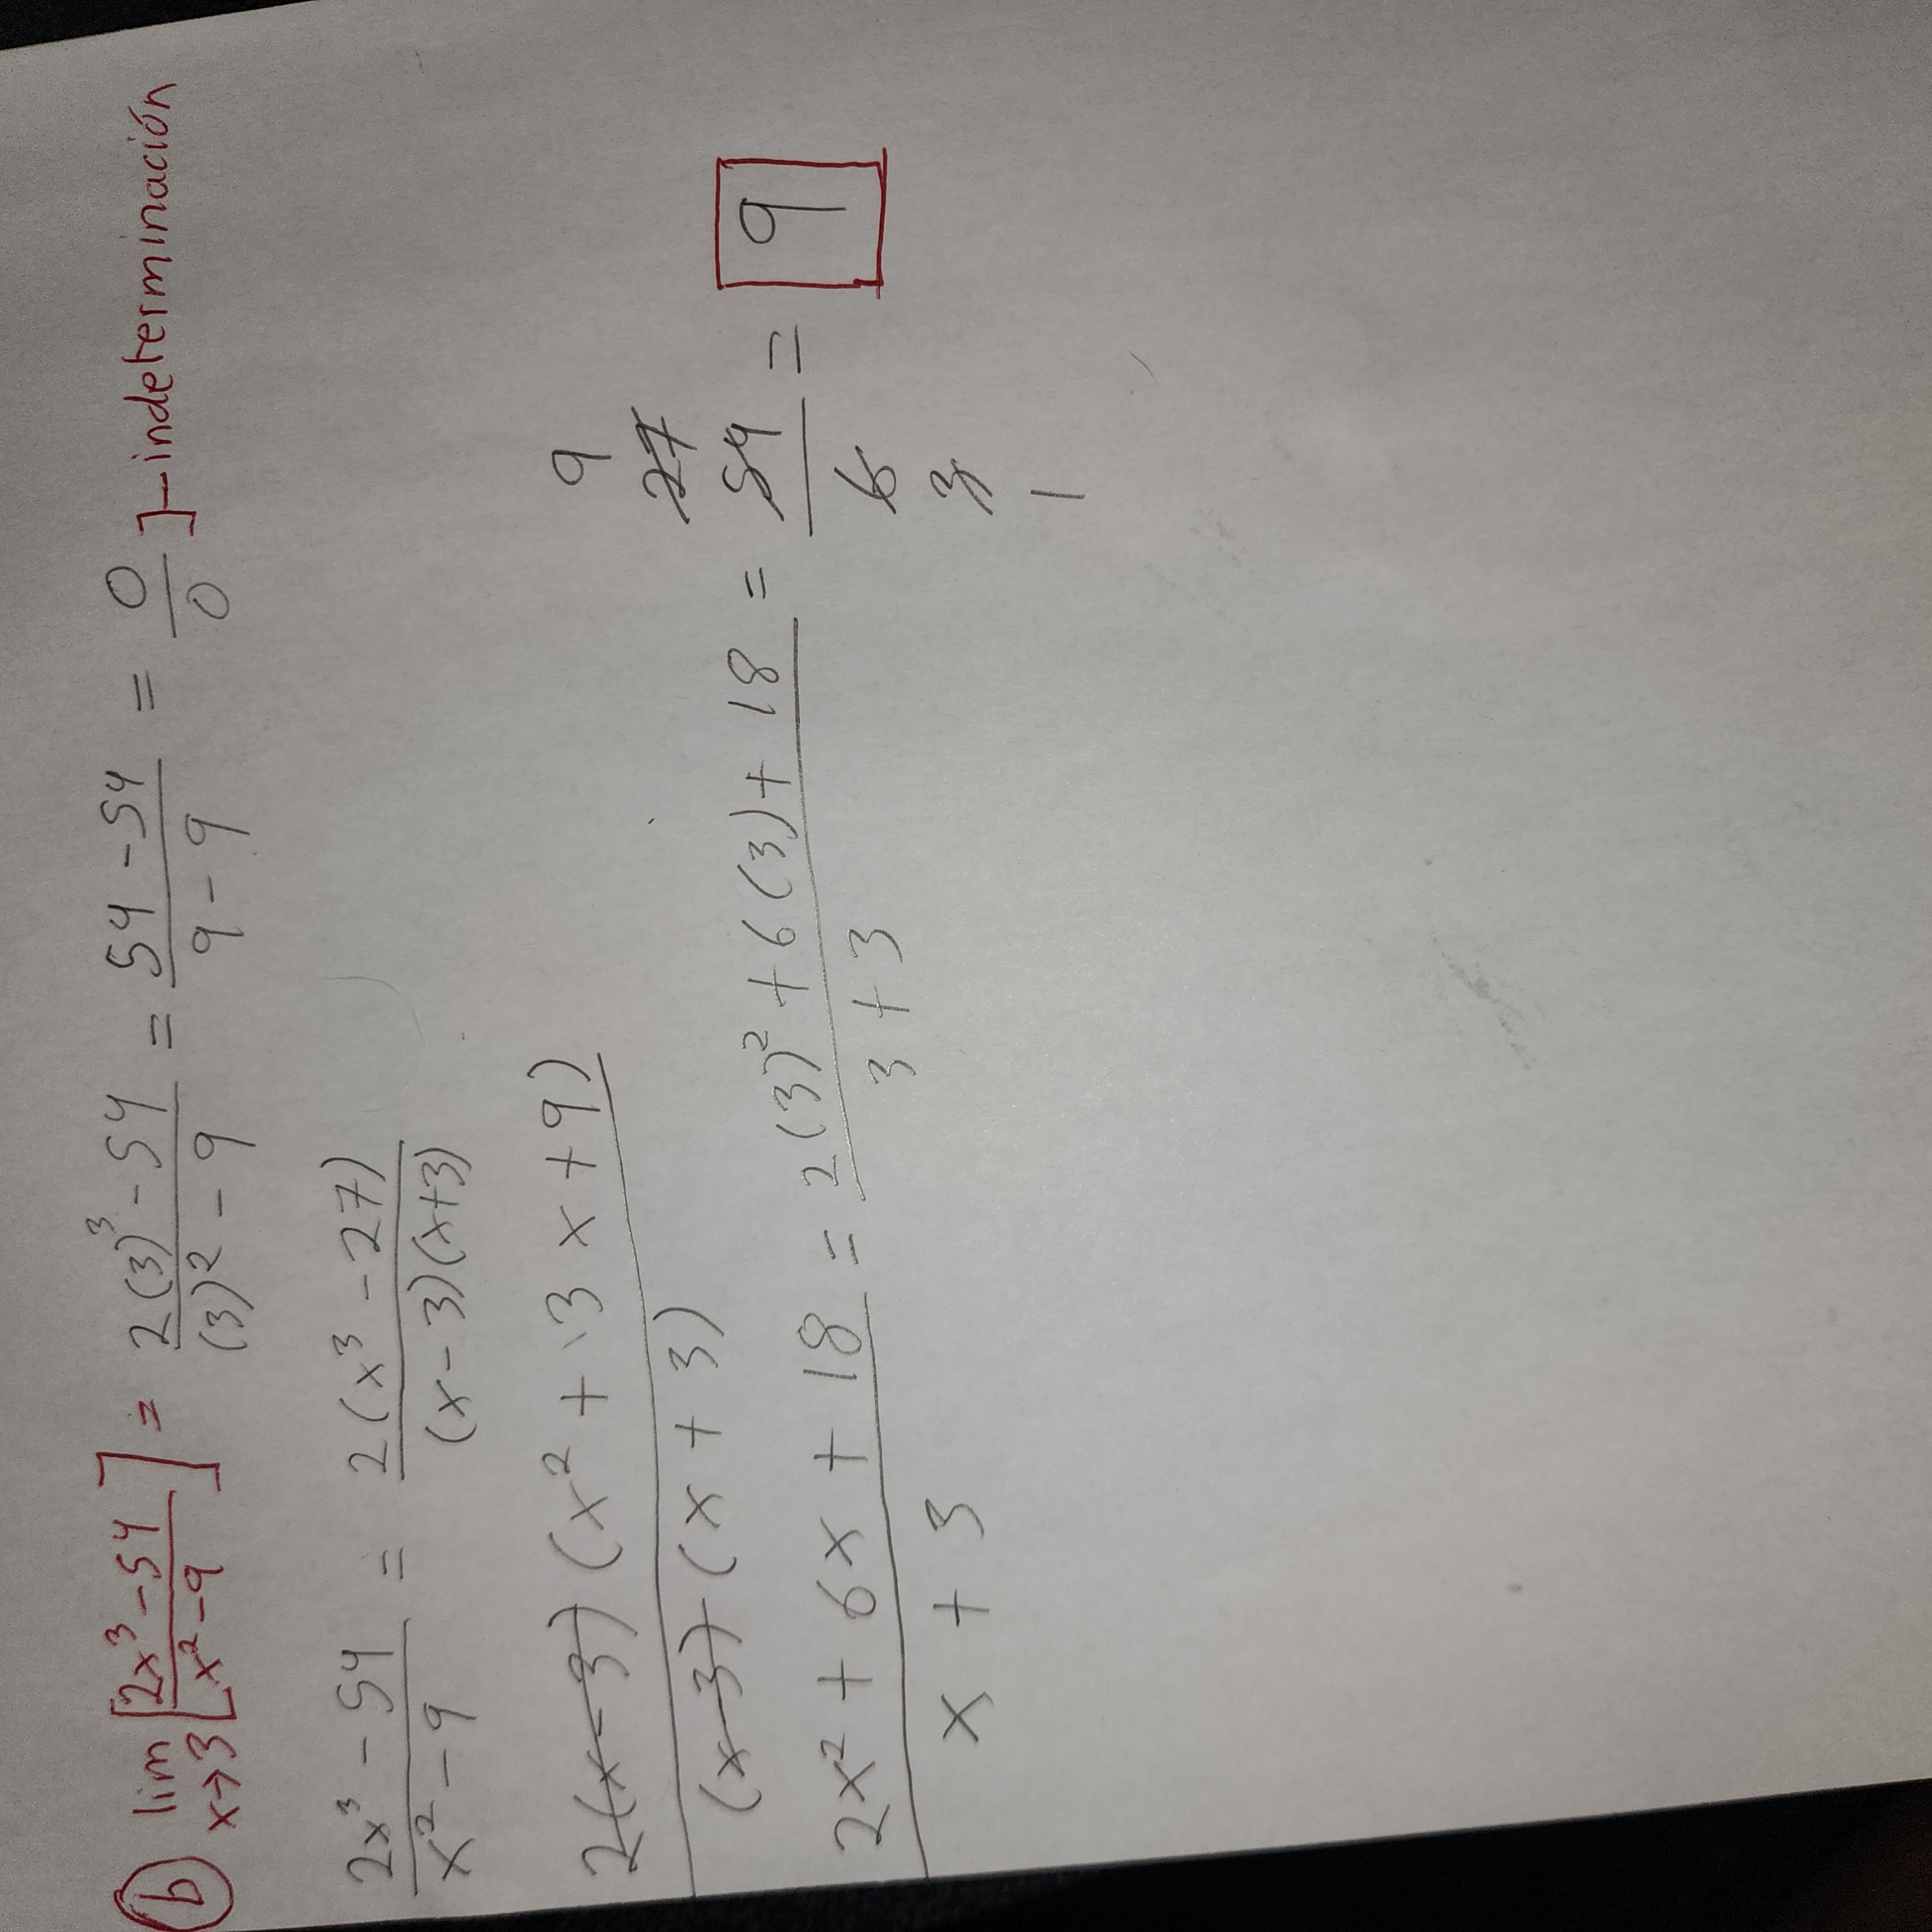 b) lim x→3 [2x³ - 54 / x² - 9] = 2(3)³ - 54 / (3)² - 9 = 54 - 54 / 9 - 9 = 0 / 0 ]- indeterminación
2x³ - 54 / x² - 9 = 2(x³ - 27) / (x - 3)(x + 3)
2(x - 3)(x² + 3x + 9) / (x - 3)(x + 3)
2x² + 6x + 18 / x + 3 = 2(3)² + 6(3) + 18 / 3 + 3 = 9 27 54 / 6 3 1 = 9